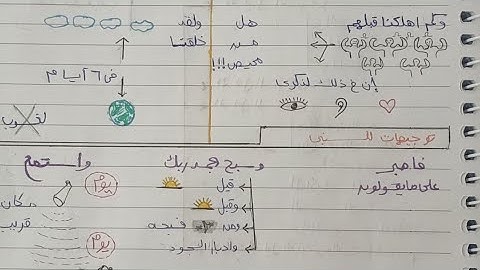 وكم اهلكنا قبلهم
هل
من
محيص!!!
ولقد
خلقنا
في ٦ أيام
لغوب
إن في ذلك لذكرى
توجيهات للنبي
فاصبر
على ما يقولون
وسبح بحمد ربك
قبل
وقبل
ومن
فسبحه
وأدبار السجود
واستمع
يوم
مكان
قريب
يوم